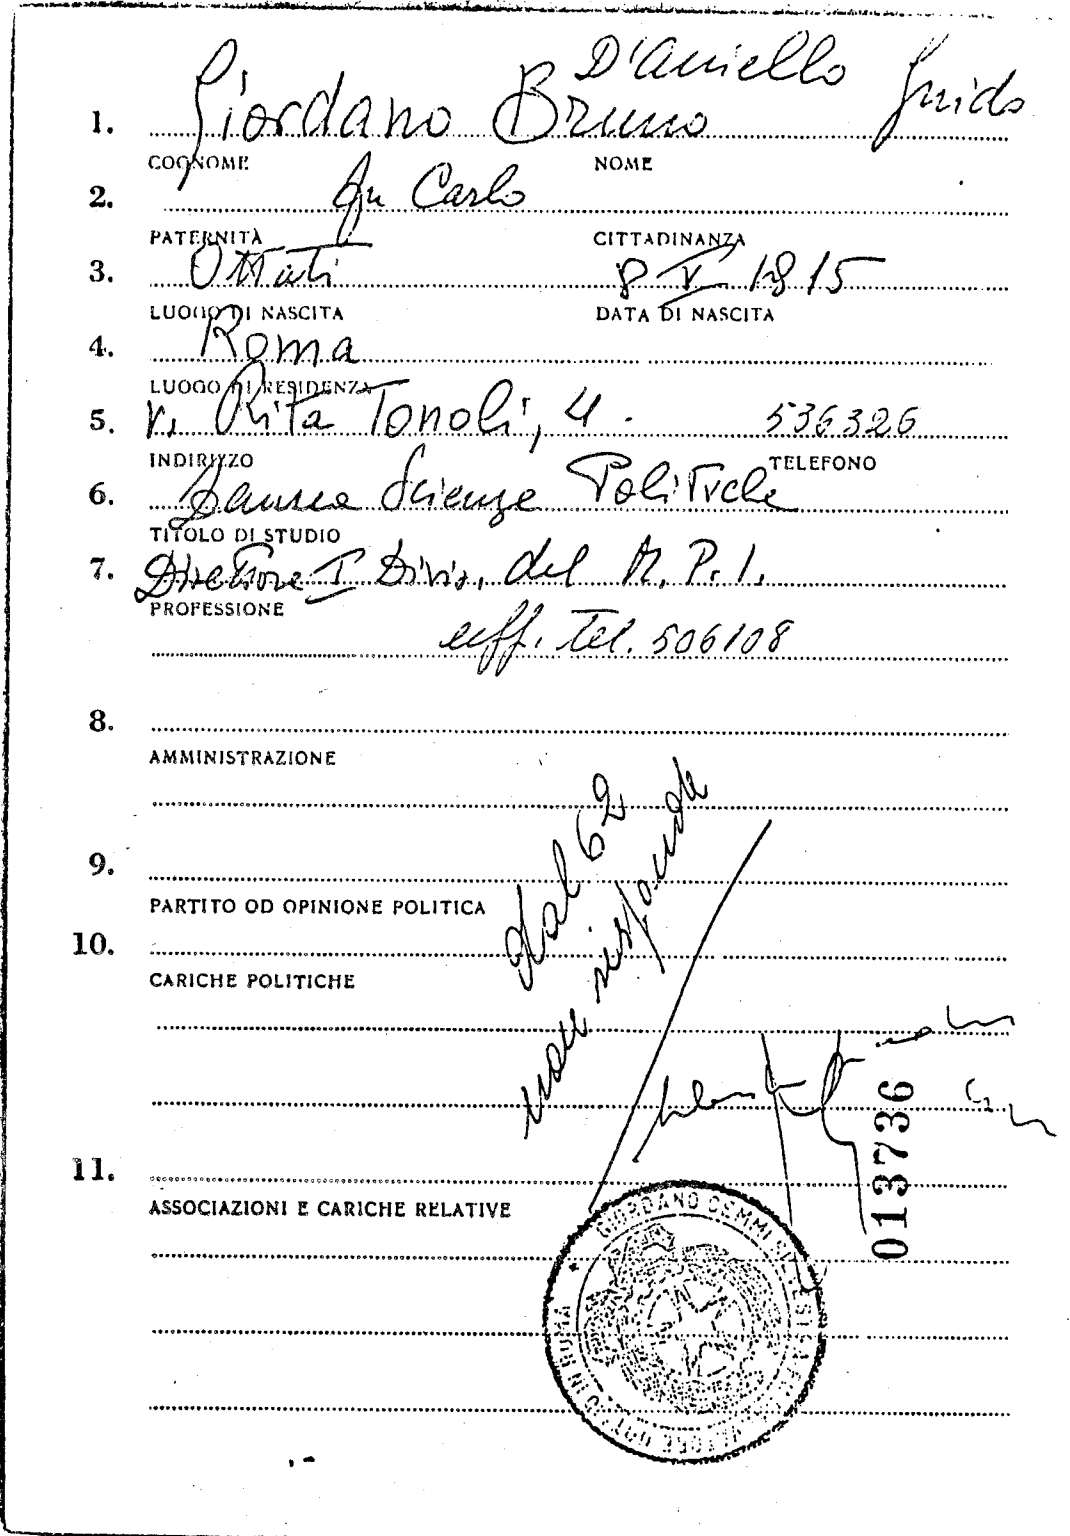 D'Aniello Guido
1. Giordano Bruno
COGNOME NOME
2. fu Carlo
PATERNITÀ CITTADINANZA
3. Ottati 8 V 1915
LUOGO DI NASCITA DATA DI NASCITA
4. Roma
LUOGO DI RESIDENZA
5. v. Rita Tonoli, 4. 536326
INDIRIZZO TELEFONO
6. Laurea Scienze Politiche
TITOLO DI STUDIO
7. Direttore I Divis. del M. P. I.
PROFESSIONE
uff. Tel. 506108
8.
AMMINISTRAZIONE
9.
PARTITO OD OPINIONE POLITICA
10.
CARICHE POLITICHE
dal 62
non risponde
013736
11.
ASSOCIAZIONI E CARICHE RELATIVE
GIORDANO GEMMI
IN ROMA